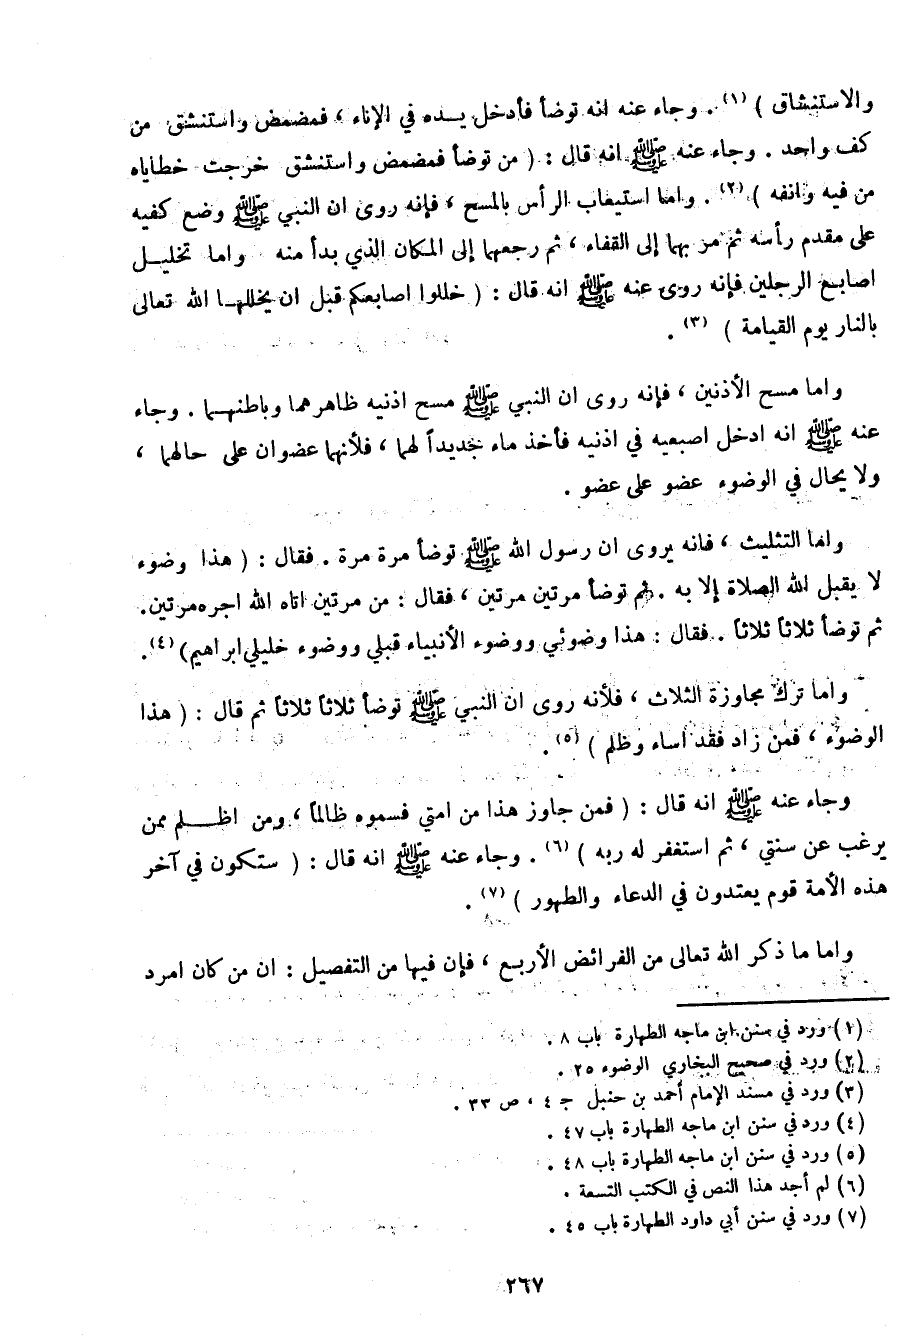 والاستنشاق ) (١) . وجاء عنه انه توضأ فأدخل يده في الإناء ، فمضمض واستنشق من
كف واحد . وجاء عنه ﷺ انه قال : ( من توضأ فمضمض واستنشق خرجت خطاياه
من فيه وانفه ) (٢) . واما استيعاب الرأس بالمسح ، فإنه روى ان النبي ﷺ وضع كفيه
على مقدم رأسه ثم مر بهما إلى القفاء ، ثم رجعهما إلى المكان الذي بدأ منه واما تخليل
اصابع الرجلين فإنه روى عنه ﷺ انه قال : ( خللوا اصابعكم قبل ان يخللها الله تعالى
بالنار يوم القيامة ) (٣) .
واما مسح الأذنين ، فإنه روى ان النبي ﷺ مسح اذنيه ظاهرهما وباطنهما . وجاء
عنه ﷺ انه ادخل اصبعيه في اذنيه فأخذ ماء جديداً لهما ، فلأنهما عضوان على حالهما ،
ولا يحال في الوضوء عضو على عضو .
واما التثليث ، فانه يروى ان رسول الله ﷺ توضأ مرة مرة . فقال : ( هذا وضوء
لا يقبل الله الصلاة إلا به . ثم توضأ مرتين مرتين ، فقال : من مرتين اتاه الله اجره مرتين .
ثم توضأ ثلاثاً ثلاثاً . فقال : هذا وضوئي ووضوء الأنبياء قبلي ووضوء خليلي ابراهيم) (٤) .
واما ترك مجاوزة الثلاث ، فلأنه روى ان النبي ﷺ توضأ ثلاثاً ثلاثاً ثم قال : ( هذا
الوضوء ، فمن زاد فقد اساء وظلم ) (٥) .
وجاء عنه ﷺ انه قال : ( فمن جاوز هذا من امتي فسموه ظالماً ، ومن اظلم ممن
يرغب عن سنتي ، ثم استغفر له ربه ) (٦) . وجاء عنه ﷺ انه قال : ( ستكون في آخر
هذه الأمة قوم يعتدون في الدعاء والطهور ) (٧) .
واما ما ذكر الله تعالى من الفرائض الأربع ، فإن فيها من التفصيل : ان من كان امرد
(١) ورد في سنن ابن ماجه الطهارة باب ٨ .
(٢) ورد في صحيح البخاري الوضوء ٢٥ .
(٣) ورد في مسند الإمام أحمد بن حنبل جـ ٤ ، ص ٣٣ .
(٤) ورد في سنن ابن ماجه الطهارة باب ٤٧ .
(٥) ورد في سنن ابن ماجه الطهارة باب ٤٨ .
(٦) لم أجد هذا النص في الكتب التسعة .
(٧) ورد في سنن أبي داود الطهارة باب ٤٥ .
٢٦٧